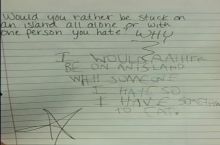 Would you rather be stuck on
an island all alone or with
one person you hate? WHY
I WOULD RATHER
BE ON AN ISLAND
WITH SOMEONE
I HATE SO
I HAVE SOMETHING
TO